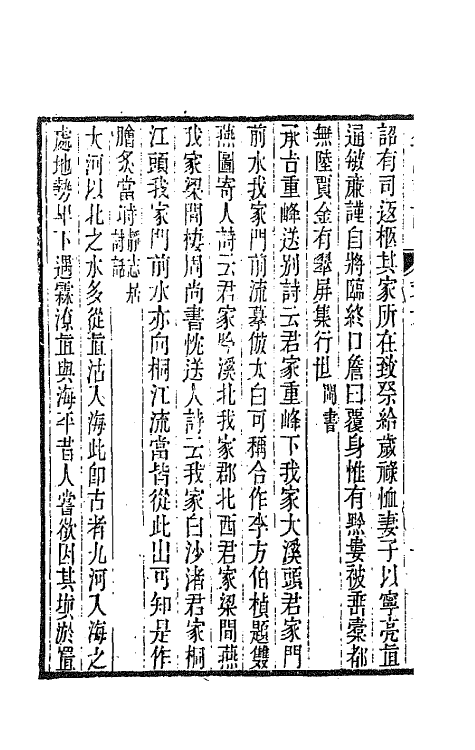 詔有司返柩其家所在致祭給歲祿恤妻子以寧亮直
通敏亷謹自將臨終口詹曰覆身惟有黔婁被垂槖都
無陸賈金有翠屏集行世閩書
承古重峰送别詩云君家重峰下我家大溪頭君家門
前水我家門前流摹倣太白可稱合作李方伯楨題雙
燕圖寄人詩云君家黔溪北我家郡北西君家梁間燕
我家梁間棲周尚書忱送人詩云我家白沙渚君家桐
江頭我家門前水亦向桐江流當皆從此山可知是作
膾炙當時靜志居詩話
大河以北之水多從直沽入海此卽古者九河入海之
處地勢卑下遇霖潦直與海平昔人嘗欲因其填淤置